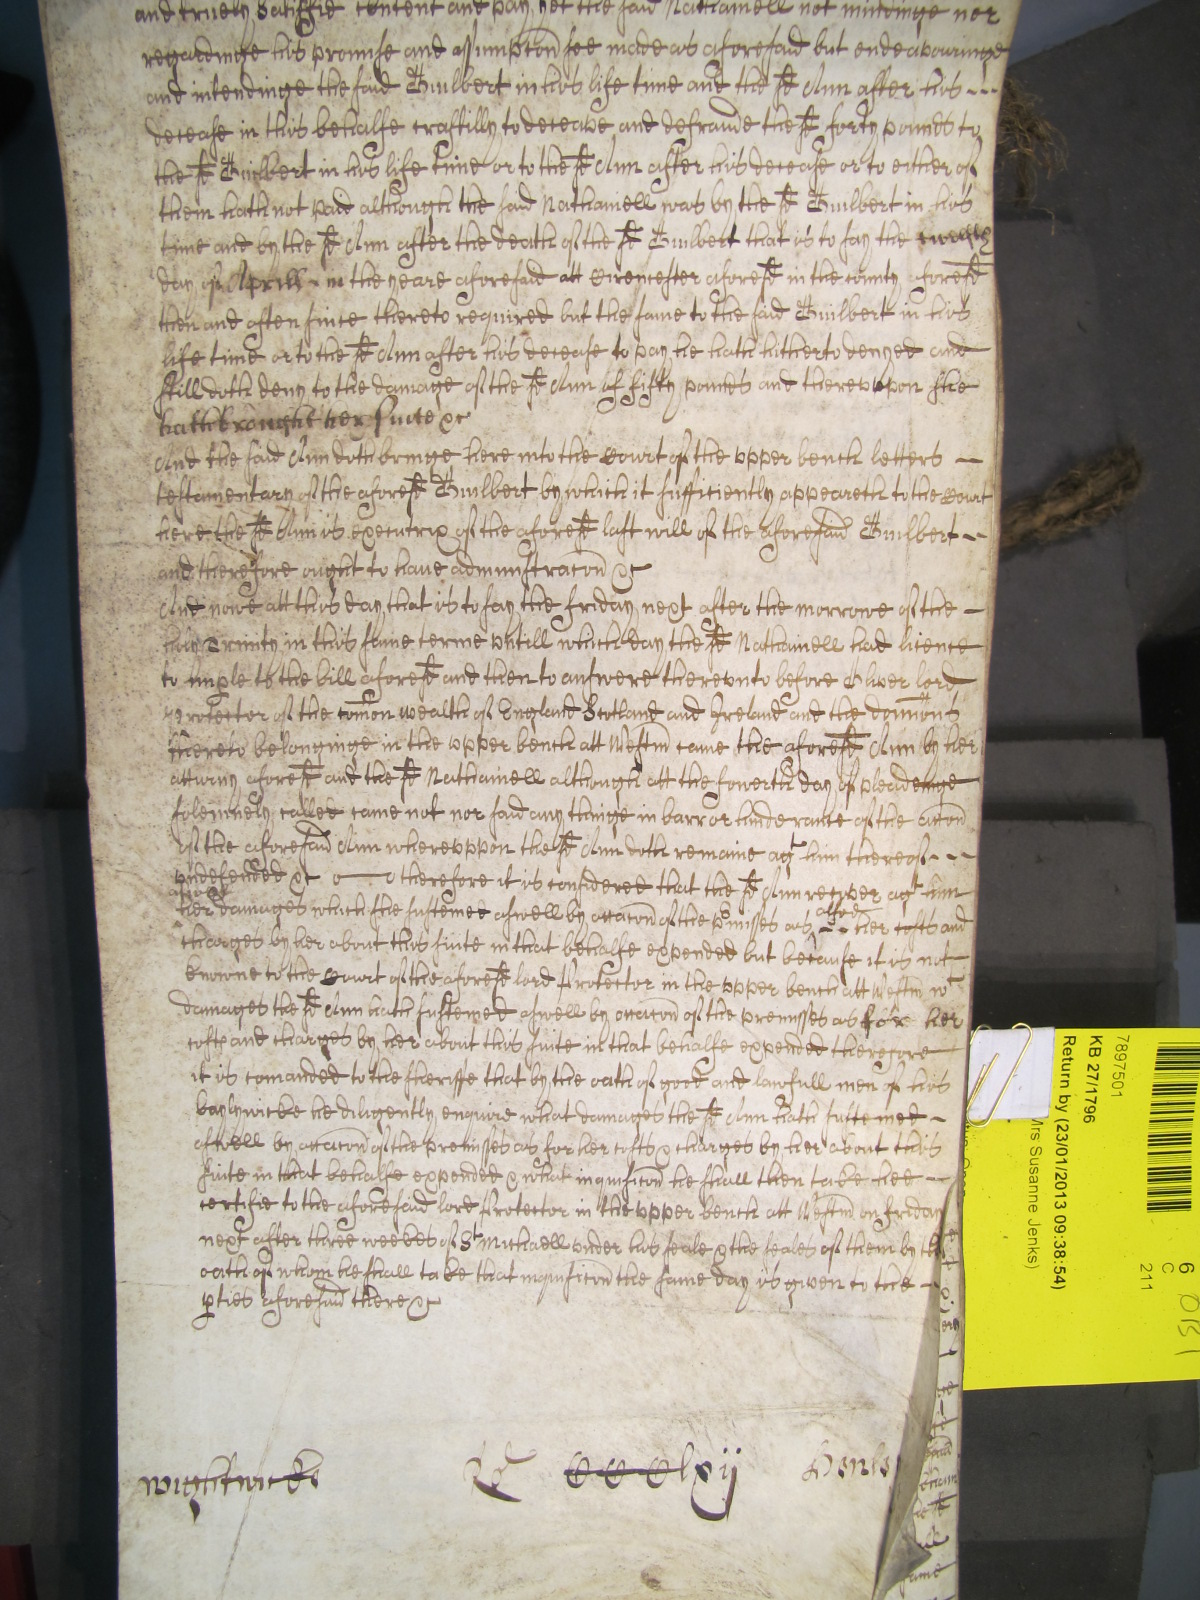 and truely Satisfie content and pay, yet the said Nathaniell not mindinge nor
regardinge his promise and assumpcon soe made as aforesaid but endeavouringe
and intendinge the said Guilbert in his life time and the sd Ann after his
decease in this behalfe craftilly to deceave and defraude the sd forty pounds to
the sd Guilbert in his life time or to the sd Ann after his decease or to either of
them hath not paid although the said Nathaniell was by the sd Guilbert in his
time and by the sd Ann after the death of the sd Guilbert that is to say the twelfe
day of Aprill in the yeare aforesaid att Cirencester aforesd in the county aforesd
then and often since thereto required but the same to the said Guilbert in his
life time or to the sd Ann after his decease to pay he hath hitherto denyed and
still doth deny to the damage of the sd Ann of fifty pounds and thereuppon she
hath brought her suite &c
And the said Ann doth bringe here into the Court of the upper bench letters
testamentary of the aforesd Guilbert by which it sufficiently appeareth to the Court
here the sd Ann is executrix of the aforesd last will of the aforesaid Guilbert
and therefore ought to have administracon &c
And nowe att this day that is to say the friday next after the morrowe of the
holy Trinity in this same terme untill which day the sd Nathaniell had licence
to imple to the bill aforesd and then to answere thereunto before Oliver lord
Protector of the comon wealth of England Scotland and Ireland and the domions
thereto belonginge in the upper bench att Westm came the aforesd Ann by her
atturny aforesd and the sd Nathaniell although att the fowerth day of pleadinge
solemnely called came not nor said any thinge in barr or hinderance of the accon
of the aforesaid Ann whereuppon the sd Ann doth remaine agt him thereof
undefended &c therefore it is considered that the sd Ann recover agt him
her damages which she susteined aswell by occacon of the pmisses as for her costs and
charges by her about this suite in that behalfe expended but because it is not
knowne to the Court of the aforesd lord Protector in the upper bench att Westm wt
damages the sd Ann hath susteined aswell by occacon of the premisses as for her
costs and charges by her about this suite in that behalfe expended therefore
it is comanded to the sheriffe that by the oath of good and lawfull men of his
baylywicke he diligently enquire what damages the sd Ann hath susteined
aswell by occacon of the premisses as for her costs & charges by her about this
suite in that behalfe expended & what inquisicon he shall then take hee
certifie to the aforesaid lord Protector in the upper bench att Westm on friday
next after three weekes of St Michaell under his seale & the seales of them by the
oath of whom he shall take that inquisicon the same day is given to the
pties aforesaid there &c
Wightwicke CCClxij
7897501
KB 27/1796
Return by (23/01/2013 09:38:54)
Mrs Susanne Jenks)
6
C
211